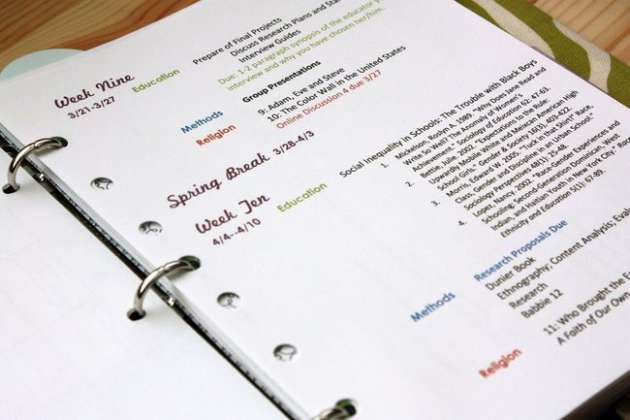 Week Nine
3/21-3/27
Education
Prepare of Final Projects
Discuss Research Plans and
Interview Guides
Due: 1-2 paragraph synopsis of the educator y
interview and why you have chosen her/him.
Methods
Group Presentations
9: Adam, Eve and Steve
Religion
10: The Color Wall in the United States
Online Discussion 4 due 3/27
Spring Break 3/28-4/3
Week Ten
4/4--4/10
Education
Social Inequality in Schools: The Trouble with Black Boys
1. Mickelson, Roslyn A. 1989. "Why Does Jane Read and
Write So Well? The Anomaly of Women's
Achievement." Sociology of Education 62: 47-63.
2. Bettie, Julie. 2002. "Expectations to the Rule:
Upwardly Mobile White and Mexican American High
School Girls." Gender & Society 16(3): 403-422.
3. Morris, Edward. 2005. "Tuck in that Shirt!" Race,
Class, Gender and Discipline in an Urban School"
Sociology Perspectives 48(1): 25-48.
4. Lopez, Nancy. 2002. "Race-Gender Experiences and
Schooling: Second-Generation Dominican, West
Indian, and Haitian Youth in New York City" Race
Ethnicity and Education 5(1): 67-89.
Methods
Research Proposals Due
Dunier Book
Ethnography; Content Analysis; Evalu
Research
Babbie 12
Religion
11: Who Brought the E
A Faith of Our Own